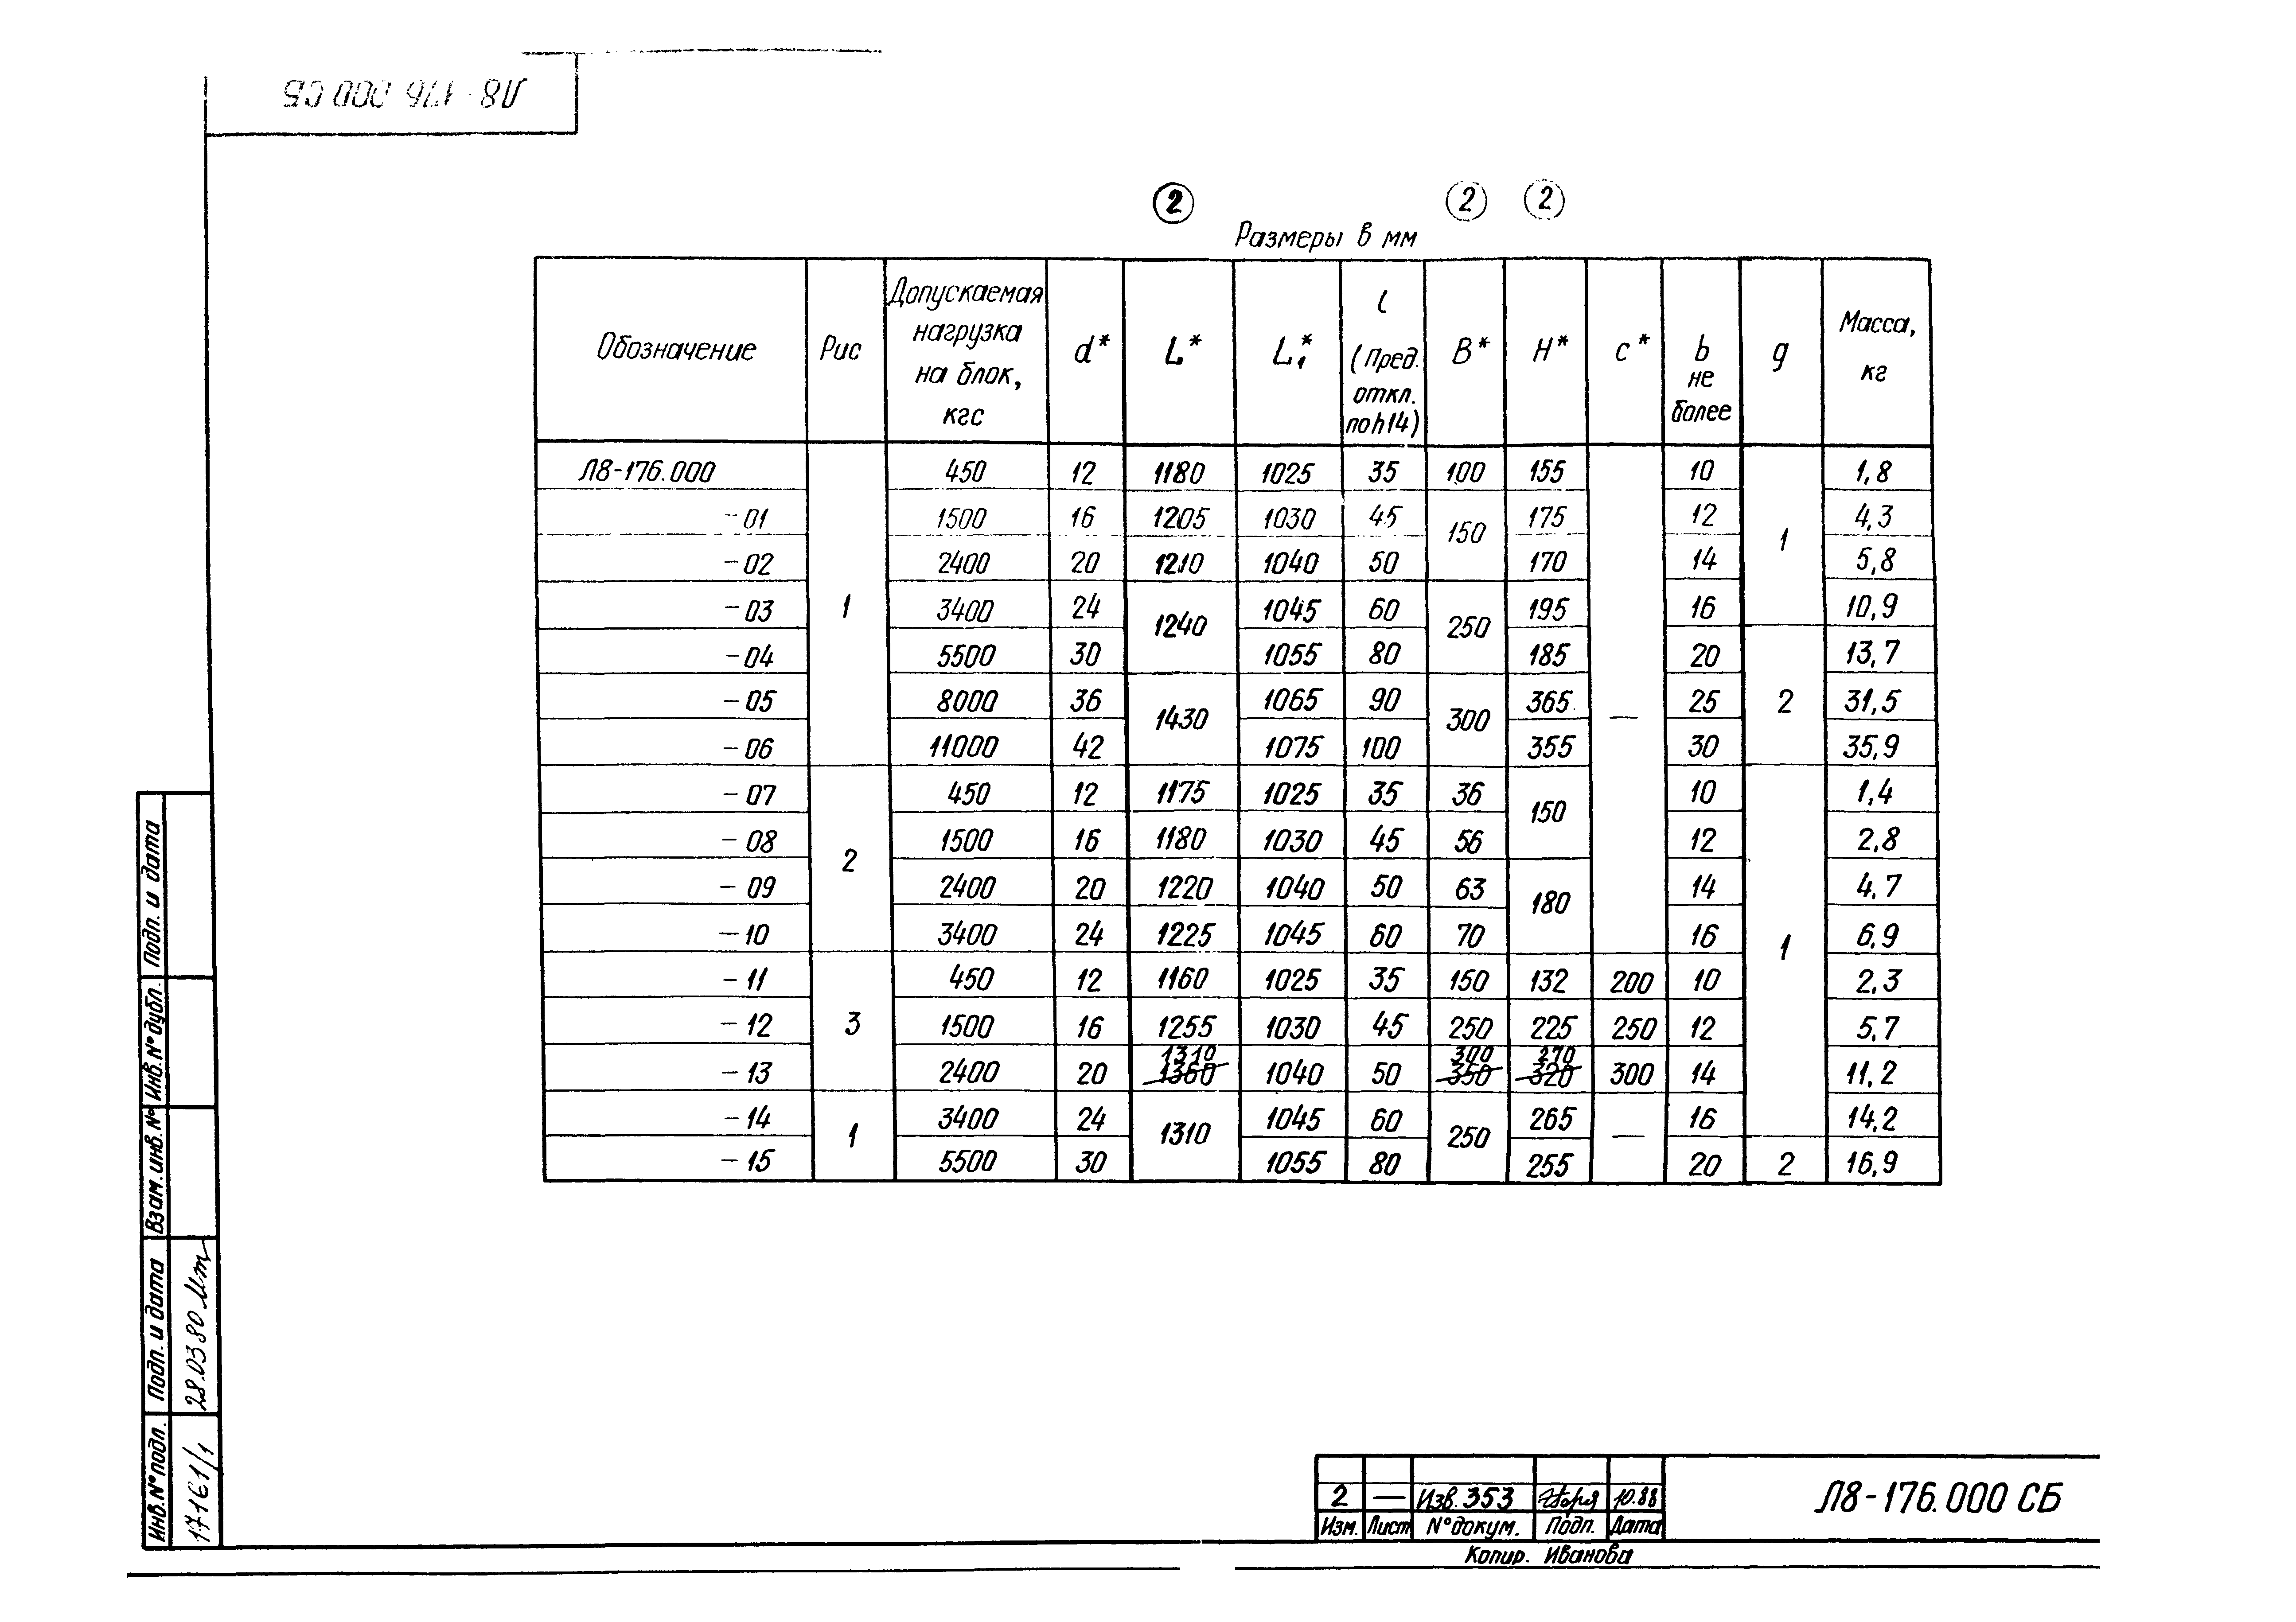 Л8-176.000 СБ
2 2 2
Размеры в мм
Обозначение Рис Допускаемая нагрузка на блок, кгс d* L* L₁* l (Пред. откл. по h14) B* H* c* b не более g Масса, кг
Л8-176.000 1 450 12 1180 1025 35 100 155 — 10 1 1,8
-01 1500 16 1205 1030 45 150 175 12 4,3
-02 2400 20 1210 1040 50 170 14 5,8
-03 3400 24 1240 1045 60 250 195 16 10,9
-04 5500 30 1055 80 185 20 2 13,7
-05 8000 36 1430 1065 90 300 365 25 31,5
-06 11000 42 1075 100 355 30 35,9
-07 2 450 12 1175 1025 35 36 150 10 1 1,4
-08 1500 16 1180 1030 45 56 12 2,8
-09 2400 20 1220 1040 50 63 180 14 4,7
-10 3400 24 1225 1045 60 70 16 6,9
-11 3 450 12 1160 1025 35 150 132 200 10 2,3
-12 1500 16 1255 1030 45 250 225 250 12 5,7
-13 2400 20 1310 1360 1040 50 300 350 270 320 300 14 11,2
-14 1 3400 24 1310 1045 60 250 265 — 16 14,2
-15 5500 30 1055 80 255 20 2 16,9
Подп. и дата
Инв.N°дубл.
Взам.инв.N°
Подп. и дата 28.03.80
Инв.N°подл. 17161/1
2 — Изв.353 10.88
Изм. Лист N°докум. Подп. Дата
Л8-176.000 СБ
Копир. Иванова